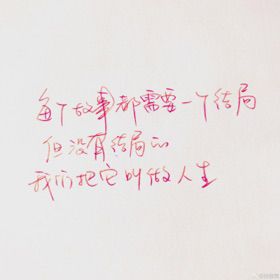 每个故事都需要一个结局
但没有结局的
我们把它叫做人生